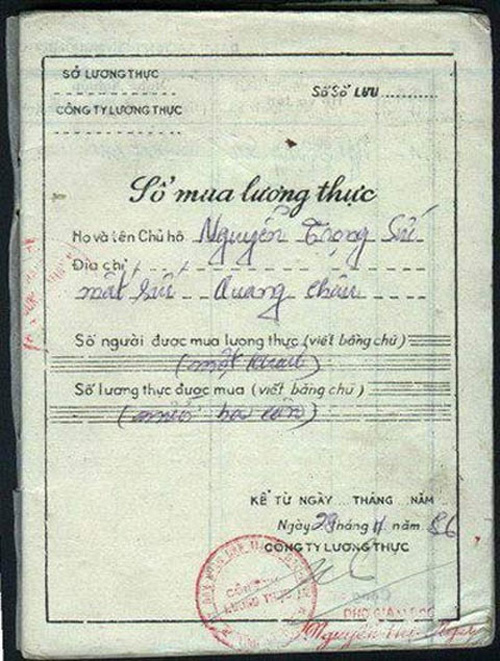 SỞ LƯƠNG THỰC
CÔNG TY LƯƠNG THỰC
Số Sổ LƯU
Sổ mua lương thực
Họ và tên Chủ hộ Nguyễn Trọng Sứ
Địa chỉ
mắt sứ Quang Châu
Số người được mua lương thực (viết bằng chữ)
(một
Số lương thực được mua (viết bằng chữ)
KỂ TỪ NGÀY THÁNG NĂM
Ngày 28 tháng 11 năm 86
CÔNG TY LƯƠNG THỰC
CÔNG TY
LƯƠNG THỰC
PHÓ GIÁM ĐỐC
Nguyễn